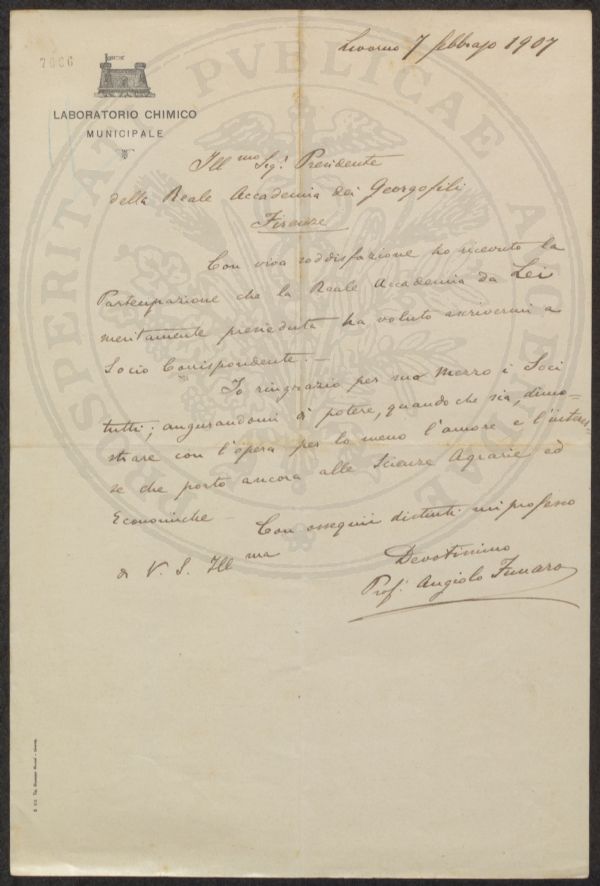 Livorno 7 febbrajo 1907
7006
LABORATORIO CHIMICO
MUNICIPALE
Ill.mo Sig.r Presidente
della Reale Accademia dei Georgofili
Firenze
Con viva soddisfazione ho ricevuto la
Partecipazione che la Reale Accademia da Lei
meritamente presieduta ha voluto ascrivermi a
Socio Corrispondente. —
Io ringrazio per suo mezzo i Soci
tutti; augurandomi di potere, quando che sia, dimo=
strare con l'opera per lo meno l'amore e l'interes=
se che porto ancora alle Scienze Agrarie ed
Economiche
Con ossequii distinti mi professo
di V. S. Ill ma
Devotissimo
Prof. Angiolo Funaro
PROSPERITATI PVBLICAE AVGENDAE